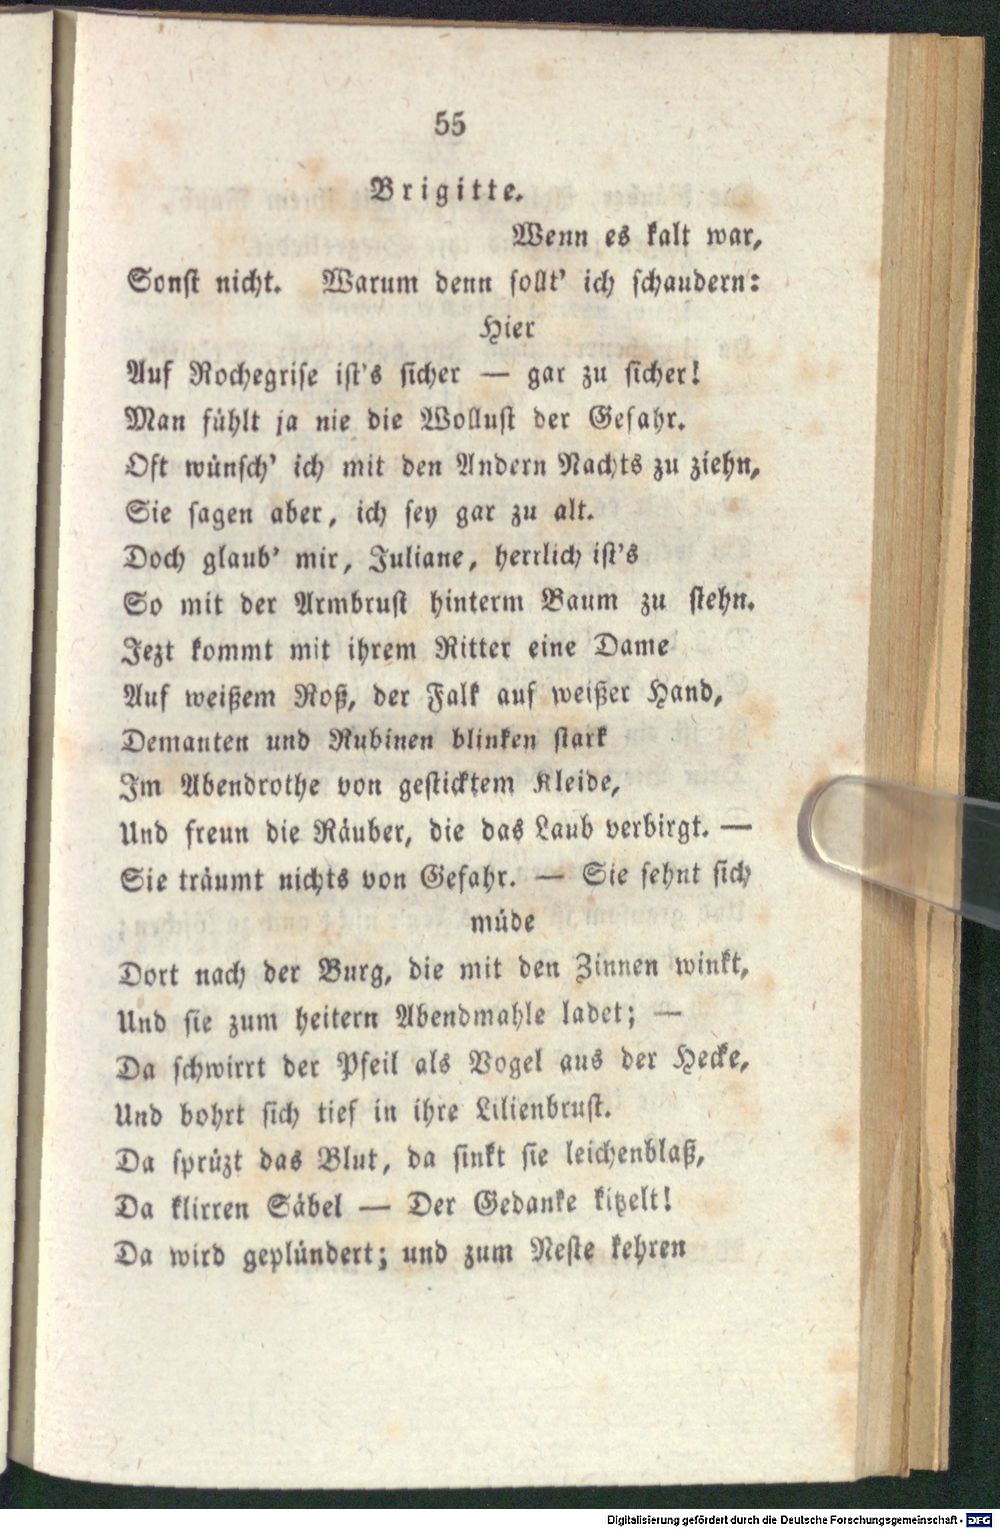 55
Brigitte.
Wenn es kalt war,
Sonst nicht. Warum denn sollt' ich schaudern:
Hier
Auf Rochegrise ist's sicher — gar zu sicher!
Man fühlt ja nie die Wollust der Gefahr.
Oft wünsch' ich mit den Andern Nachts zu ziehn,
Sie sagen aber, ich sey gar zu alt.
Doch glaub' mir, Juliane, herrlich ist's
So mit der Armbrust hinterm Baum zu stehn.
Jezt kommt mit ihrem Ritter eine Dame
Auf weißem Roß, der Falk auf weißer Hand,
Demanten und Rubinen blinken stark
Im Abendrothe von gesticktem Kleide,
Und freun die Räuber, die das Laub verbirgt. —
Sie träumt nichts von Gefahr. — Sie sehnt sich
müde
Dort nach der Burg, die mit den Zinnen winkt,
Und sie zum heitern Abendmahle ladet; —
Da schwirrt der Pfeil als Vogel aus der Hecke,
Und bohrt sich tief in ihre Lilienbrust.
Da sprüzt das Blut, da sinkt sie leichenblaß,
Da klirren Säbel — Der Gedanke kitzelt!
Da wird geplündert; und zum Neste kehren
Digitalisierung gefördert durch die Deutsche Forschungsgemeinschaft - DFG